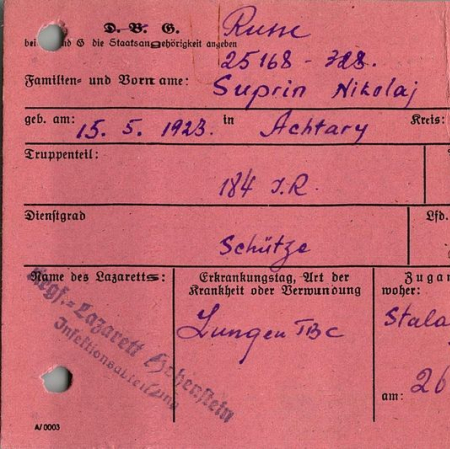 D. V. G. Russe
bei und G die Staatsangehörigkeit angeben
25168 - 328.
Familien- und Vorname: Suprin Nikolaj
geb. am: 15. 5. 1923. in Achtary Kreis:
Truppenteil:
184 I.R.
Dienstgrad Lfd.
Schütze
Name des Lazaretts: Erkrankungstag, Art der Zugan
Krankheit oder Verwundung woher:
Krgf.-Lazarett Hohenstein
Infektionsabteilung
Lungen TBC Stala
am: 26
A/0003